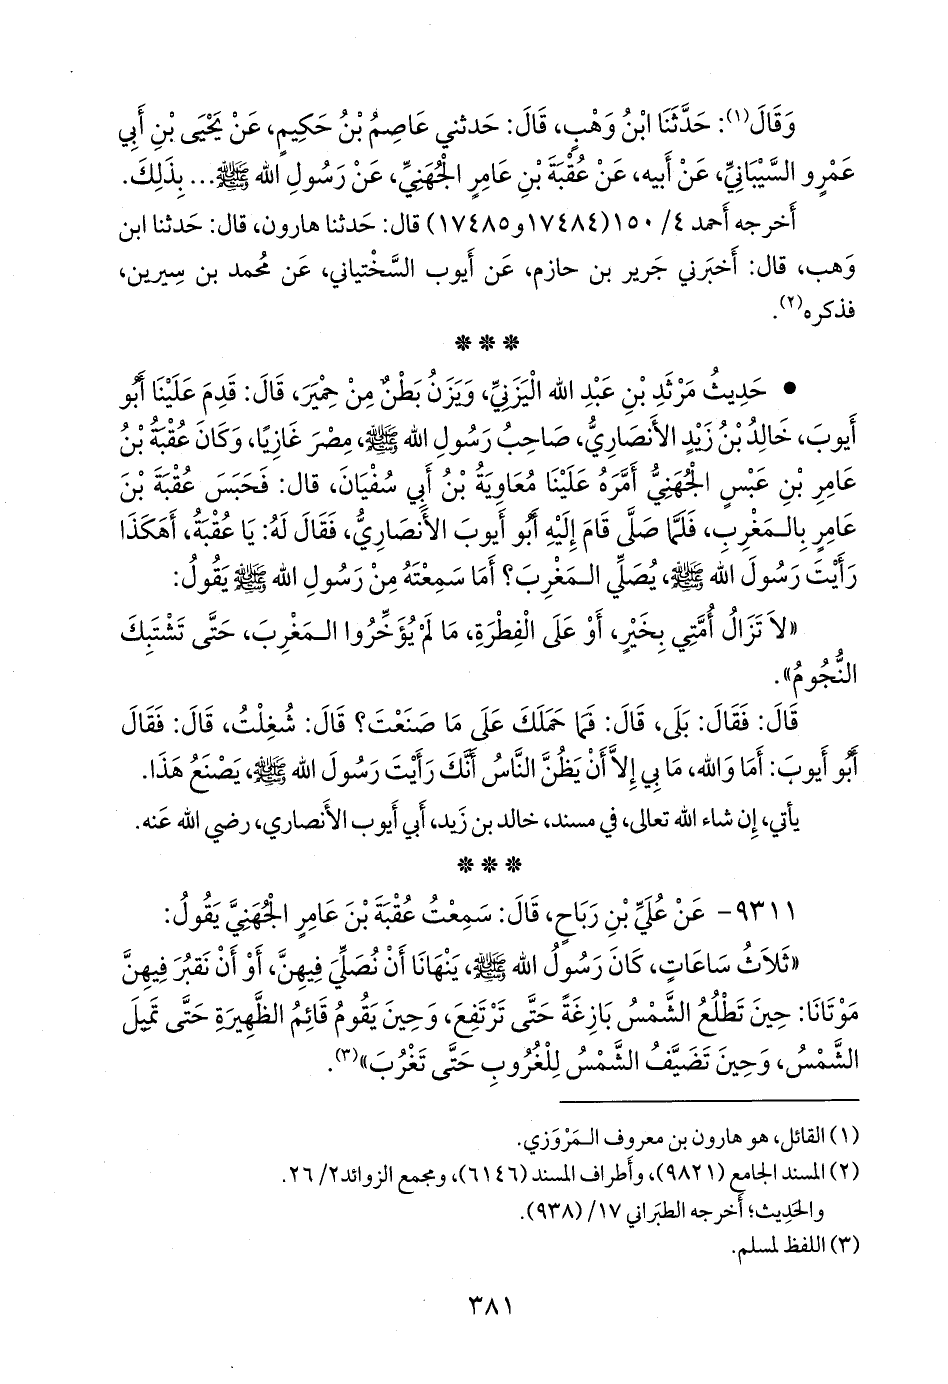 وَقَالَ(١): حَدَّثَنَا ابْنُ وَهْبٍ، قَالَ: حَدثني عَاصِمُ بْنُ حَكِيمٍ، عَنْ يَحْيَى بْنِ أَبِي
عَمْرٍو السَّيْبَانِيِّ، عَنْ أَبيه، عَنْ عُقْبَةَ بْنِ عَامِرٍ الْجُهَنِيِّ، عَنْ رَسُولِ الله ﷺ... بِذَلِكَ.
أَخرجه أحمد ٤/ ١٥٠ (١٧٤٨٤ و١٧٤٨٥) قال: حَدثنا هارون، قال: حَدثنا ابن
وَهب، قال: أَخبَرني جَرير بن حازم، عَن أَيوب السَّختياني، عَن مُحمد بن سِيرين،
فذكره(٢).
❊ ❊ ❊
• حَدِيثُ مَرْثَدِ بْنِ عَبْدِ الله الْيَزَنِيِّ، وَيَزَنُ بَطْنٌ مِنْ حِمْيَرَ، قَالَ: قَدِمَ عَلَيْنَا أَبُو
أَيوبَ، خَالِدُ بْنُ زَيْدٍ الأَنصَارِيُّ، صَاحِبُ رَسُولِ الله ﷺ، مِصْرَ غَازِيًا، وَكَانَ عُقْبَةُ بْنُ
عَامِرِ بْنِ عَبْسٍ الْجُهَنِيُّ أَمَّرَهُ عَلَيْنَا مُعَاوِيَةُ بْنُ أَبِي سُفْيَانَ، قال: فَحَبَسَ عُقْبَةُ بْنُ
عَامِرٍ بِالـمَغْرِبِ، فَلَمَّا صَلَّى قَامَ إِلَيْهِ أَبُو أَيوبَ الأَنصَارِيُّ، فَقَالَ لَهُ: يَا عُقْبَةُ، أَهَكَذَا
رَأَيْتَ رَسُولَ الله ﷺ، يُصَلِّي الـمَغْرِبَ؟ أَمَا سَمِعْتَهُ مِنْ رَسُولِ الله ﷺ يَقُولُ:
«لاَ تَزَالُ أُمَّتِي بِخَيْرٍ، أَوْ عَلَى الْفِطْرَةِ، مَا لَمْ يُؤَخِّرُوا الـمَغْرِبَ، حَتَّى تَشْتَبِكَ
النُّجُومُ».
قَالَ: فَقَالَ: بَلَى، قَالَ: فَمَا حَمَلَكَ عَلَى مَا صَنَعْتَ؟ قَالَ: شُغِلْتُ، قَالَ: فَقَالَ
أَبُو أَيوبَ: أَمَا وَالله، مَا بِي إِلاَّ أَنْ يَظُنَّ النَّاسُ أَنَّكَ رَأَيْتَ رَسُولَ الله ﷺ، يَصْنَعُ هَذَا.
يأتي، إن شاء الله تعالى، في مسند، خالد بن زَيد، أَبي أَيوب الأَنصاري، رضي الله عَنه.
❊ ❊ ❊
٩٣١١- عَنْ عُلَيِّ بْنِ رَبَاحٍ، قَالَ: سَمِعْتُ عُقْبَةَ بْنَ عَامِرٍ الْجُهَنِيَّ يَقُولُ:
«ثَلاَثُ سَاعَاتٍ، كَانَ رَسُولُ الله ﷺ، يَنْهَانَا أَنْ نُصَلِّيَ فِيهِنَّ، أَوْ أَنْ نَقْبُرَ فِيهِنَّ
مَوْتَانَا: حِينَ تَطْلُعُ الشَّمْسُ بَازِغَةً حَتَّى تَرْتَفِعَ، وَحِينَ يَقُومُ قَائِمُ الظَّهِيرَةِ حَتَّى تَمِيلَ
الشَّمْسُ، وَحِينَ تَضَيَّفُ الشَّمْسُ لِلْغُرُوبِ حَتَّى تَغْرُبَ»(٣).
(١) القائل، هو هارون بن معروف الـمَرْوَزي.
(٢) المسند الجامع (٩٨٢١)، وأَطراف المسند (٦١٤٦)، ومجمع الزوائد ٢/ ٢٦.
والحَدِيث؛ أَخرجه الطبَراني ١٧/ (٩٣٨).
(٣) اللفظ لمسلم.
٣٨١